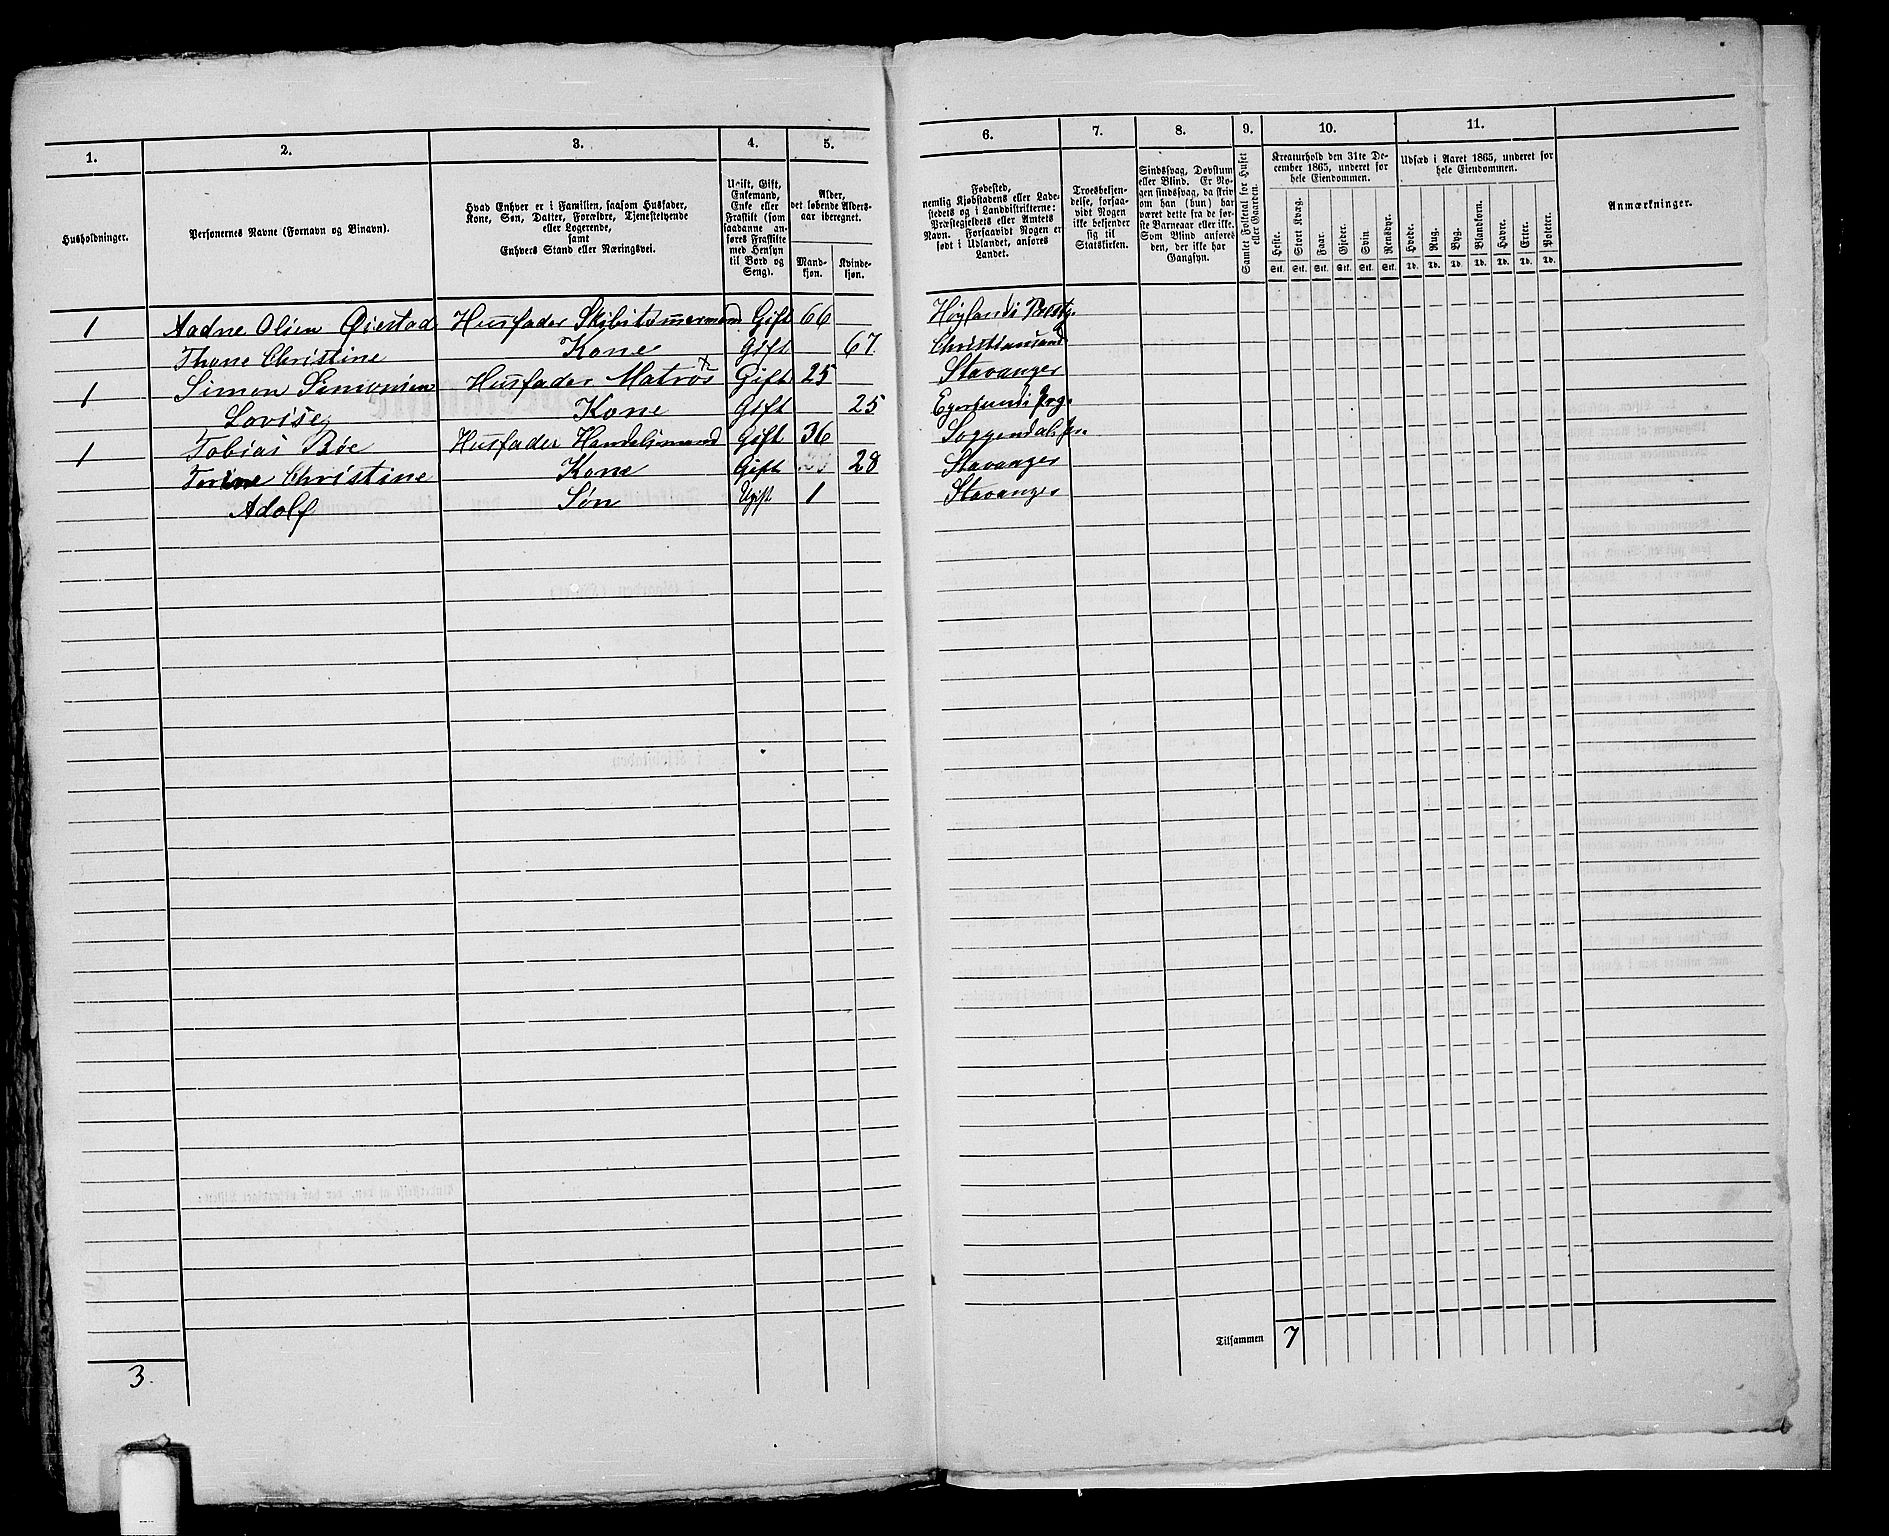 1. 2. 3. 4. 5. 6. 7. 8. 9. 10. 11.
Husholdninger.
Personernes Navne (Fornavn og Binavn).
Hvad Enhver er i Familien, saasom Husfader,
Kone, Søn, Datter, Forældre, Tjenestetyende
eller Logerende,
samt
Enhvers Stand eller Næringsvei.
Ugift, Gift,
Enkemand,
Enke eller
Fraskilt (som
saadanne an-
føres Fraskilte
med Hensyn
til Bord og
Seng).
Alder,
det løbende Alders-
aar iberegnet.
Mand-
kjøn.
Kvinde-
kjøn.
Fødested,
nemlig Kjøbstadens eller Lade-
stedets og i Landdistrikterne:
Præstegjeldets eller Amtets
Navn. Forsaavidt Nogen er
født i Udlandet, anføres
Landet.
Troesbekjen-
delse, forsaa-
vidt Nogen
ikke bekjender
sig til
Statskirken.
Sindssvag, Døvstum
eller Blind. Er No-
gen sindssvag, da skriv
om han (hun) har
været dette fra de før-
ste Barneaar eller ikke.
Som Blind anføres
den, der ikke har
Gangsyn.
Samlet Folketal for Huset
eller Gaarden.
Kreaturhold den 31te De-
cember 1865, underet for
hele Eiendommen.
Heste. Stort Kvæg. Faar. Gjeder. Svin. Rensdyr.
Stk. Stk. Stk. Stk. Stk. Stk.
Udsæd i Aaret 1865, underet for
hele Eiendommen.
Hvede. Rug. Byg. Blandkorn. Havre. Erter. Poteter.
Td. Td. Td. Td. Td. Td. Td.
Anmærkninger.
1 Aadne Olsen Øiestad Husfader Skibstømmermand Gift 66 Høylands Præstg.
Thone Christine Kone Gift 67 Christiansand
1 Simon Simonsen Husfader Matros Gift 25 Stavanger
Lovise Kone Gift 25 Egersunds Prg.
1 Tobias Bøe Husfader Handelsmand Gift 36 Soggendals Pr.
Torine Christine Kone Gift 28 Stavanger
Adolf Søn Ugift 1 Stavanger
Tilsammen 7
3.